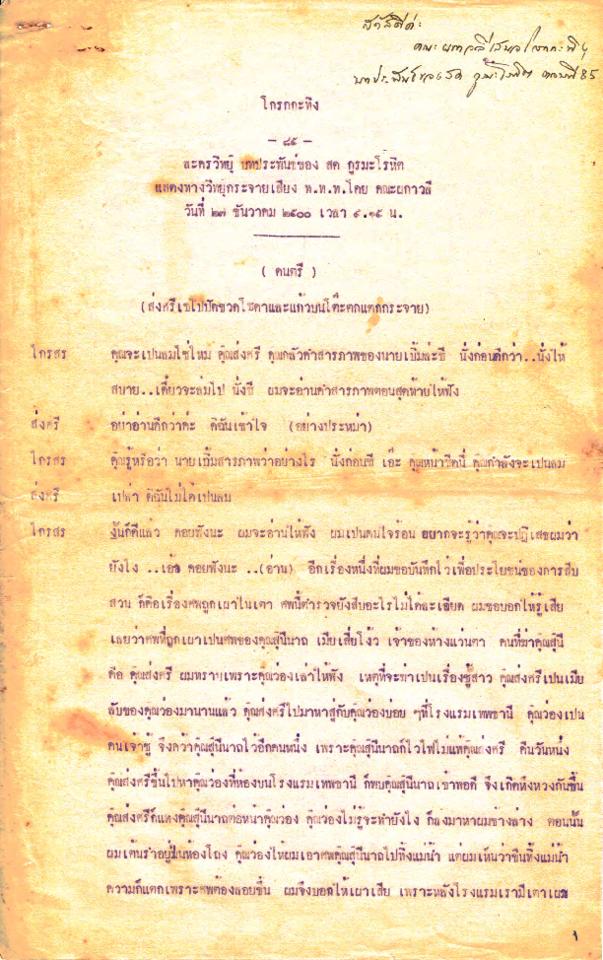 สวัสดีค่ะ
คณะผกาวลีเสนอโกรกกะทิง
บทประพันธ์ของสด กูรมะโรหิต ตอนที่ 85
โกรกกะทิง
– ๘๕ –
ละครวิทยุ บทประพันธ์ของ สด กูรมะโรหิต
แสดงทางวิทยุกระจายเสียง ท.ท.ท.โดย คณะผกาวลี
วันที่ ๒๗ ธันวาคม ๒๕๐๐ เวลา ๙.๑๕ น.
( ดนตรี )
(ส่งศรีเซไปปัดขวดโซดาและแก้วบนโต๊ะตกแตกกระจาย)
ไกรสร คุณจะเป็นลมใช่ไหม คุณส่งศรี คุณกลัวคำสารภาพของนายเบิ้มล่ะซี นั่งก่อนดีกว่า..นั่งให้
สบาย..เดี๋ยวจะล้มไป นั่งซี ผมจะอ่านคำสารภาพตอนสุดท้ายให้ฟัง
ส่งศรี อย่าอ่านดีกว่าค่ะ ดิฉันเข้าใจ (อย่างประหม่า)
ไกรสร คุณรู้หรือว่า นายเบิ้มสารภาพว่าอย่างไร นั่งก่อนซี เอ๊ะ คุณหน้าซีดนี่ คุณกำลังจะเป็นลม
ส่งศรี เปล่า ดิฉันไม่ได้เป็นลม
ไกรสร งั้นก็ดีแล้ว คอยฟังนะ ผมจะอ่านให้ฟัง ผมเป็นคนใจร้อน อยากจะรู้ว่าคุณจะปฏิเสธผมว่า
ยังไง ..เอ้า คอยฟังนะ ..(อ่าน) อีกเรื่องหนึ่งที่ผมขอบันทึกไว้เพื่อประโยชน์ของการสืบ
สวน ก็คือเรื่องศพถูกเผาในเตา ศพนี้ตำรวจยังสืบอะไรไม่ได้ละเอียด ผมขอบอกให้รู้เสีย
เลยว่าศพที่ถูกเผาเป็นศพของคุณสุนีนาถ เมียเสี่ยโง้ว เจ้าของห้างแว่นตา คนที่ฆ่าคุณสุนี
คือ คุณส่งศรี ผมทราบเพราะคุณว่องเล่าให้ฟัง เหตุที่จะฆ่าเป็นเรื่องชู้สาว คุณส่งศรีเป็นเมีย
ลับของคุณว่องมานานแล้ว คุณส่งศรีไปมาหาสู่กับคุณว่องบ่อย ๆที่โรงแรมเทพธานี คุณว่องเป็น
คนเจ้าชู้ จึงคว้าคุณสุนีนาถไว้อีกคนหนึ่ง เพราะคุณสุนีนาถก็ไวไฟไม่แพ้คุณส่งศรี คืนวันหนึ่ง
คุณส่งศรีขึ้นไปหาคุณว่องที่ห้องบนโรงแรมเทพธานี ก็พบคุณสุนีนาถเข้าพอดี จึงเกิดหึงหวงกันขึ้น
คุณส่งศรีก็แทงคุณสุนีนาถต่อหน้าคุณว่อง คุณว่องไม่รู้จะทำยังไง ก็ลงมาหาผมข้างล่าง ตอนนั้น
ผมเต้นรำอยู่ในห้องโถง คุณว่องให้ผมเอาศพคุณสุนีนาถไปทิ้งแม่น้ำ แต่ผมเห็นว่าขืนทิ้งแม่น้ำ
ความก็แตกเพราะศพต้องลอยขึ้น ผมจึงบอกให้เผาเสีย เพราะหลังโรงแรมเรามีเตาเผา
๑